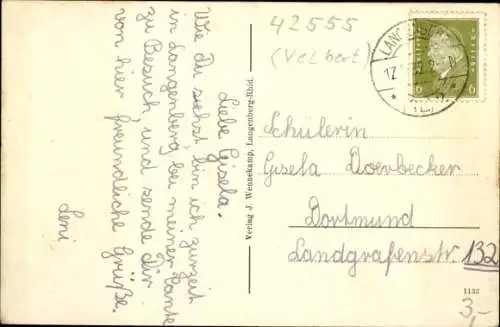 Liebe Gisela.
Wie Du siehst, bin ich zurzeit
in Langenberg bei meiner Tante
zu Besuch, und sende Dir
von hier freundliche Grüße.
Leni
Verlag J. Wennekamp, Langenberg-Rhld.
42555
(Velbert)
17
6 6
Schülerin
Gisela Doerbecker
Dortmund
Landgrafenstr. 132
1132
3,-